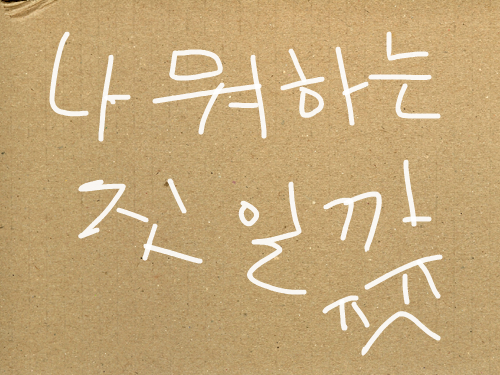 나 뭐하는
짓 일까